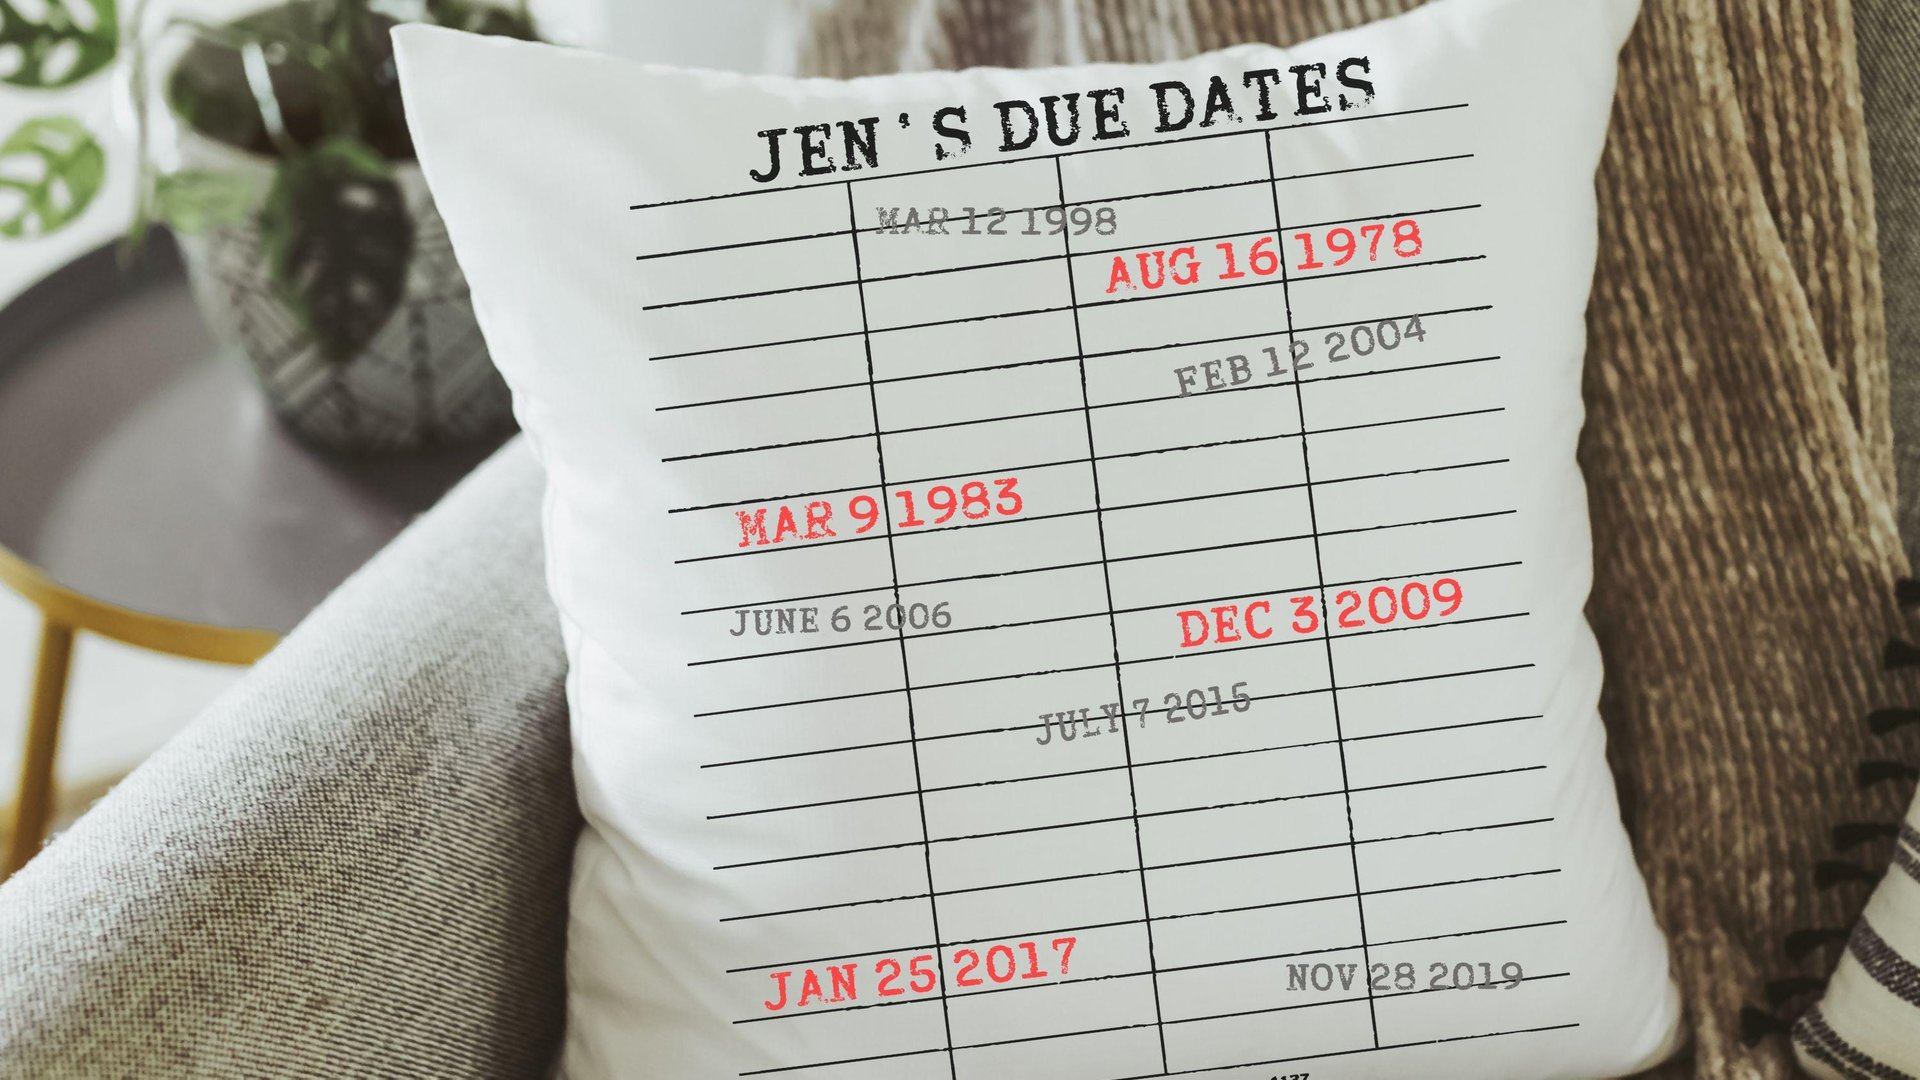 JEN'S DUE DATES
MAR 12 1998
AUG 16 1978
FEB 12 2004
MAR 9 1983
JUNE 6 2006
DEC 3 2009
JULY 7 2015
JAN 25 2017
NOV 28 2019